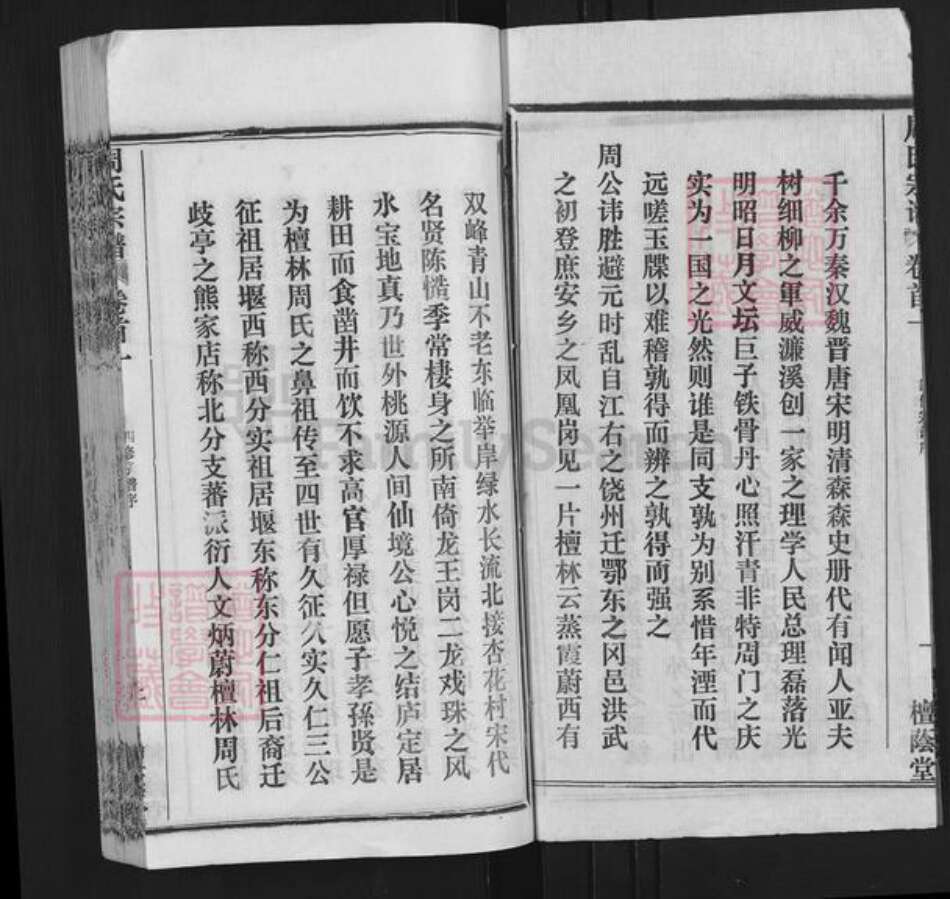 檀蔭堂
千余万秦汉魏晋唐宋明清森森史册代有闻人亚夫
树细柳之軍威濂溪创一家之理学人民总理磊落光
明昭日月文坛巨子铁骨丹心照汗青非特周门之庆
实为一国之光然则谁是同支孰为别系惜年湮而代
远嗟玉牒以难稽孰得而辨之孰得而强之
周公讳胜避元时乱自江右之饶州迁鄂东之冈邑洪武
之初登庶安乡之凤凰岗见一片檀林云蒸霞蔚西有
双峰青山不老东临举岸绿水长流北接杏花村宋代
名贤陈慥季常棲身之所南倚龙王岗二龙戏珠之风
水宝地真乃世外桃源人间仙境公心悦之结庐定居
耕田而食凿井而饮不求高官厚禄但愿子孝孫贤是
为檀林周氏之鼻祖传至四世有久征久实久仁三公
征祖居堰西称西分实祖居堰东称东分仁祖后裔迁
歧亭之熊家店称北分支蕃派衍人文炳蔚檀林周氏
周氏宗譜
FamilySearch